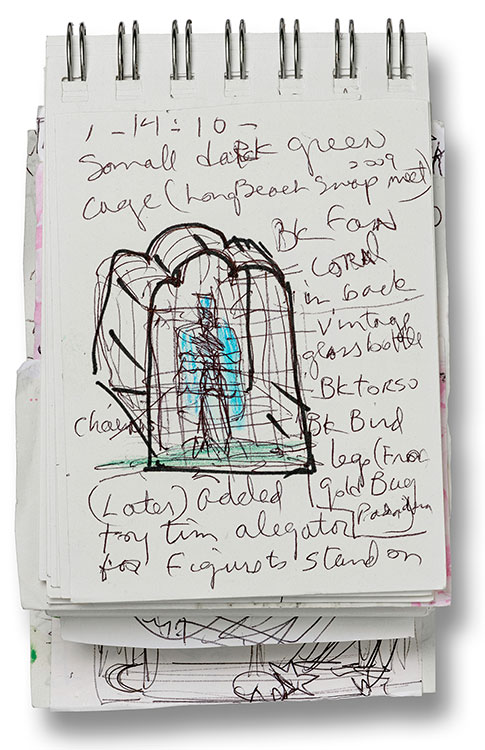 1-14-10-
Small dark green
2009
cage (Long Beach Swap meet)
Bk Fan
CORAL
in back
- vintage
glass bottle
- BK torso
Bk Bird
legs (From
Gold Bug
Pasadena
chains
(Later) added
toy tin alegator
for Figure to stand on